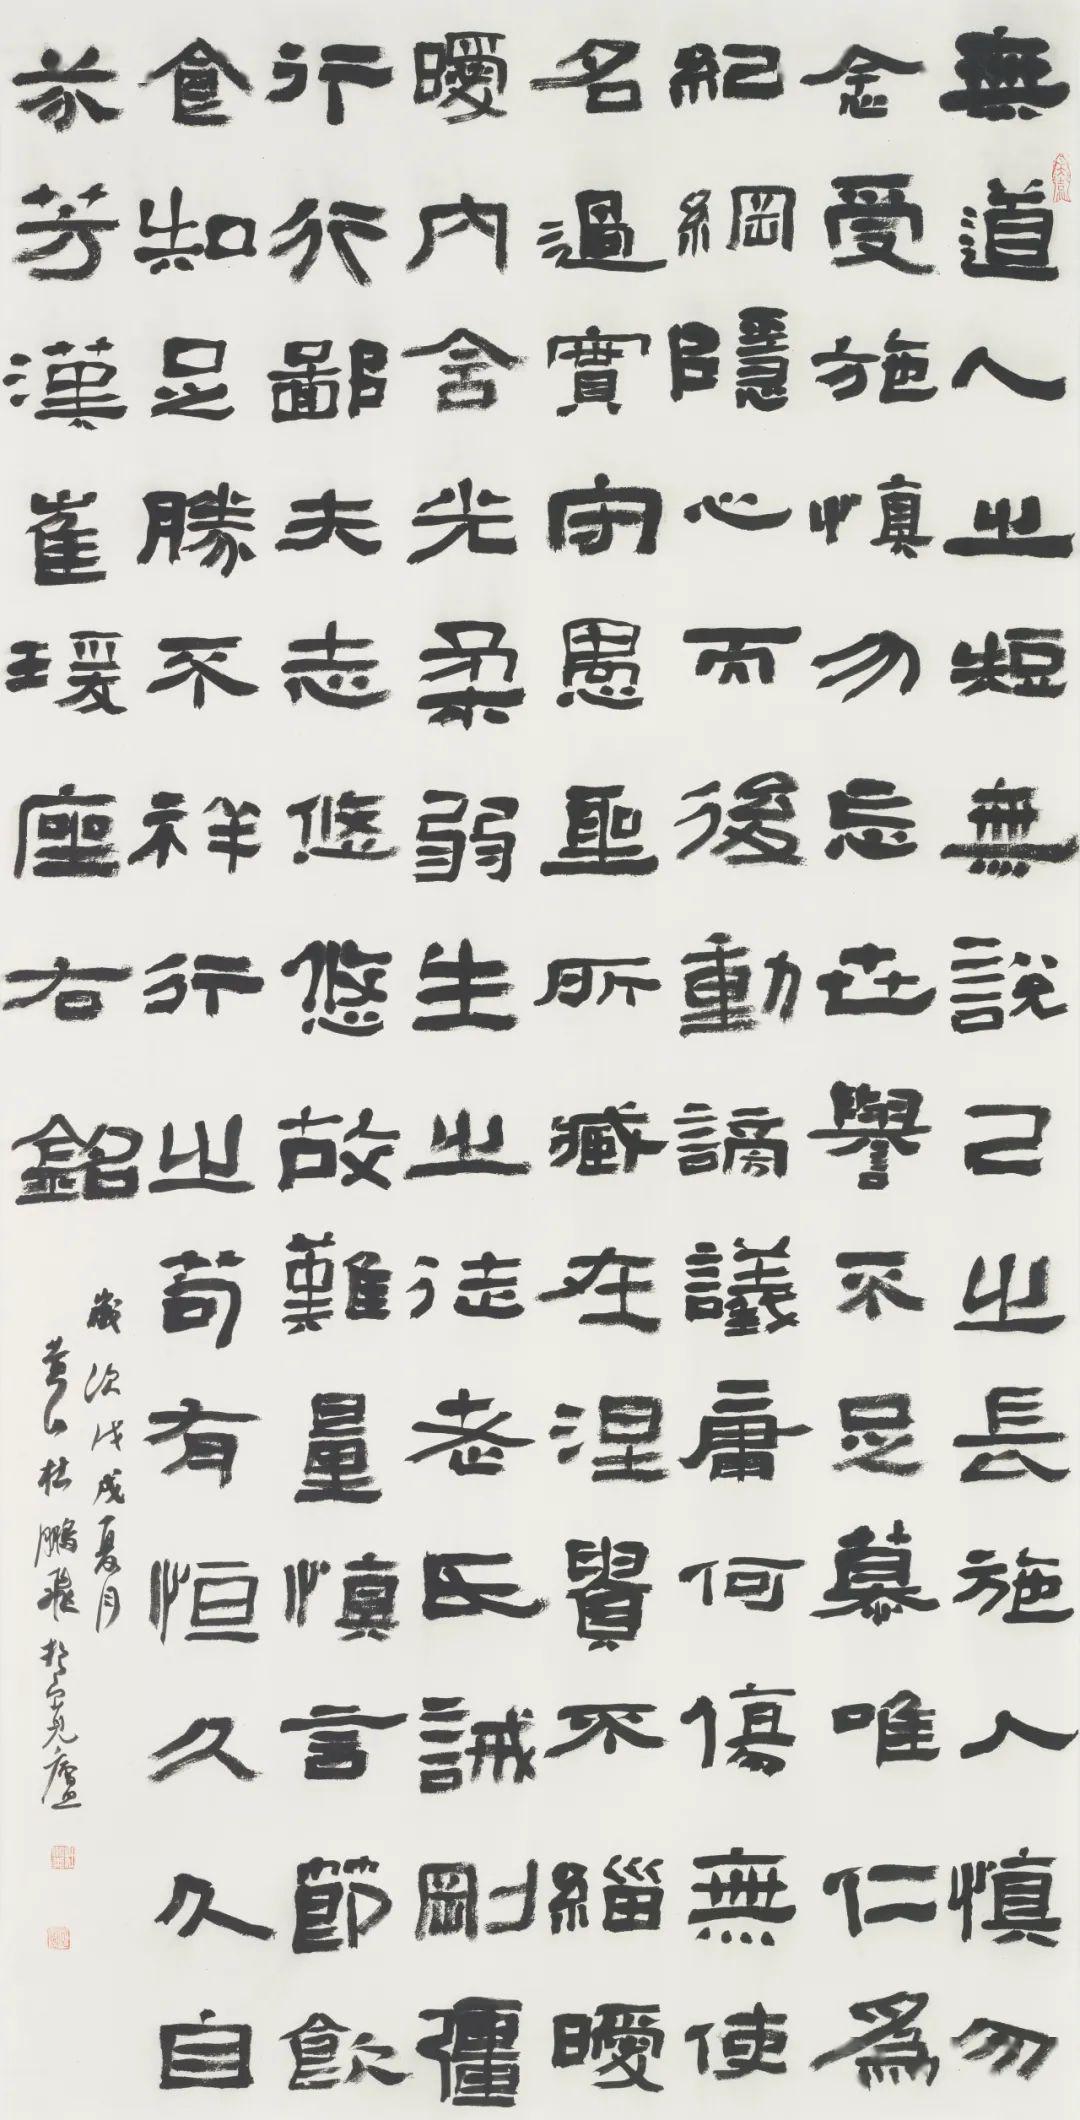 無道人之短無說己之長施人慎勿
念受施慎勿忘世譽不足慕唯仁爲
紀綱隱心而後動謗議庸何傷無使
名過實守愚聖所臧在涅貴不緇曖
曖內含光柔弱生之徒老氏誡剛彊
行行鄙夫志悠悠故難量慎言節飲
食知足勝不祥行之苟有恒久久自
芬芳漢崔瑗座右銘
歲次戊戌夏月
黄山杜鵬飛於廬